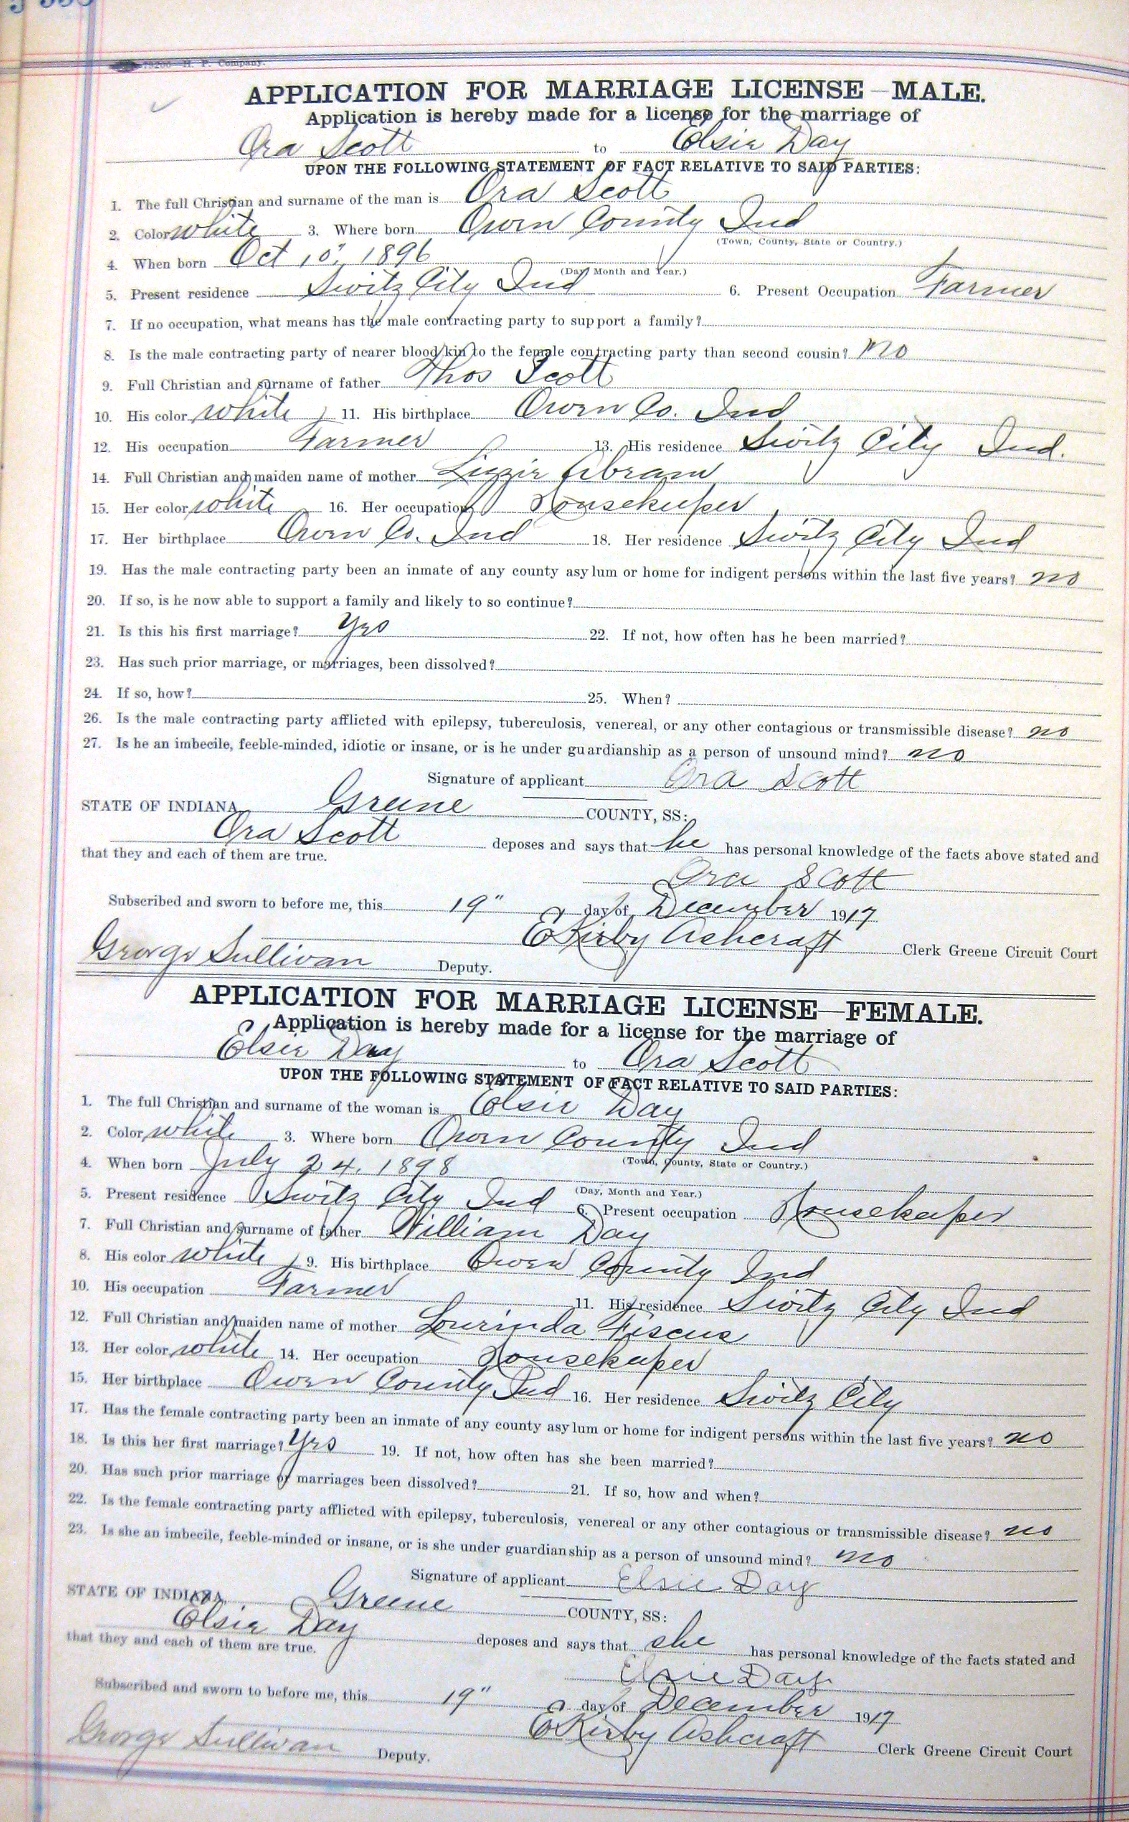 79206—H. P. Company.
APPLICATION FOR MARRIAGE LICENSE—MALE.
Application is hereby made for a license for the marriage of
Ora Scott to Elsie Day
UPON THE FOLLOWING STATEMENT OF FACT RELATIVE TO SAID PARTIES:
1. The full Christian and surname of the man is Ora Scott
2. Color white 3. Where born Owen County Ind
(Town, County, State or Country.)
4. When born Oct 10, 1896
(Day, Month and Year.)
5. Present residence Switz City Ind 6. Present Occupation Farmer
7. If no occupation, what means has the male contracting party to support a family?
8. Is the male contracting party of nearer blood kin to the female contracting party than second cousin? no
9. Full Christian and surname of father Thos Scott
10. His color white 11. His birthplace Owen Co. Ind
12. His occupation Farmer 13. His residence Switz City Ind.
14. Full Christian and maiden name of mother Lizzie Abram
15. Her color white 16. Her occupation Housekeeper
17. Her birthplace Owen Co. Ind 18. Her residence Switz City Ind
19. Has the male contracting party been an inmate of any county asylum or home for indigent persons within the last five years? no
20. If so, is he now able to support a family and likely to so continue?
21. Is this his first marriage? Yes 22. If not, how often has he been married?
23. Has such prior marriage, or marriages, been dissolved?
24. If so, how? 25. When?
26. Is the male contracting party afflicted with epilepsy, tuberculosis, venereal, or any other contagious or transmissible disease? no
27. Is he an imbecile, feeble-minded, idiotic or insane, or is he under guardianship as a person of unsound mind? no
Signature of applicant Ora Scott
STATE OF INDIANA, Greene COUNTY, SS:
Ora Scott deposes and says that he has personal knowledge of the facts above stated and
that they and each of them are true.
Ora Scott
Subscribed and sworn to before me, this 19" day of December 1917
E Kirby Ashcraft Clerk Greene Circuit Court
George Sullivan Deputy.
APPLICATION FOR MARRIAGE LICENSE—FEMALE.
Application is hereby made for a license for the marriage of
Elsie Day to Ora Scott
UPON THE FOLLOWING STATEMENT OF FACT RELATIVE TO SAID PARTIES:
1. The full Christian and surname of the woman is Elsie Day
2. Color white 3. Where born Owen County Ind
(Town, County, State or Country.)
4. When born July 24, 1898
(Day, Month and Year.)
5. Present residence Switz City Ind 6. Present occupation Housekeeper
7. Full Christian and surname of father William Day
8. His color white 9. His birthplace Owen County Ind
10. His occupation Farmer 11. His residence Switz City Ind
12. Full Christian and maiden name of mother Lourinda Fiscus
13. Her color white 14. Her occupation Housekeeper
15. Her birthplace Owen County Ind 16. Her residence Switz City
17. Has the female contracting party been an inmate of any county asylum or home for indigent persons within the last five years? no
18. Is this her first marriage? Yes 19. If not, how often has she been married?
20. Has such prior marriage or marriages been dissolved? 21. If so, how and when?
22. Is the female contracting party afflicted with epilepsy, tuberculosis, venereal or any other contagious or transmissible disease? no
23. Is she an imbecile, feeble-minded or insane, or is she under guardianship as a person of unsound mind? no
Signature of applicant Elsie Day
STATE OF INDIANA, Greene COUNTY, SS:
Elsie Day deposes and says that she has personal knowledge of the facts stated and
that they and each of them are true.
Elsie Day
Subscribed and sworn to before me, this 19" day of December 1917
E Kirby Ashcraft Clerk Greene Circuit Court
George Sullivan Deputy.